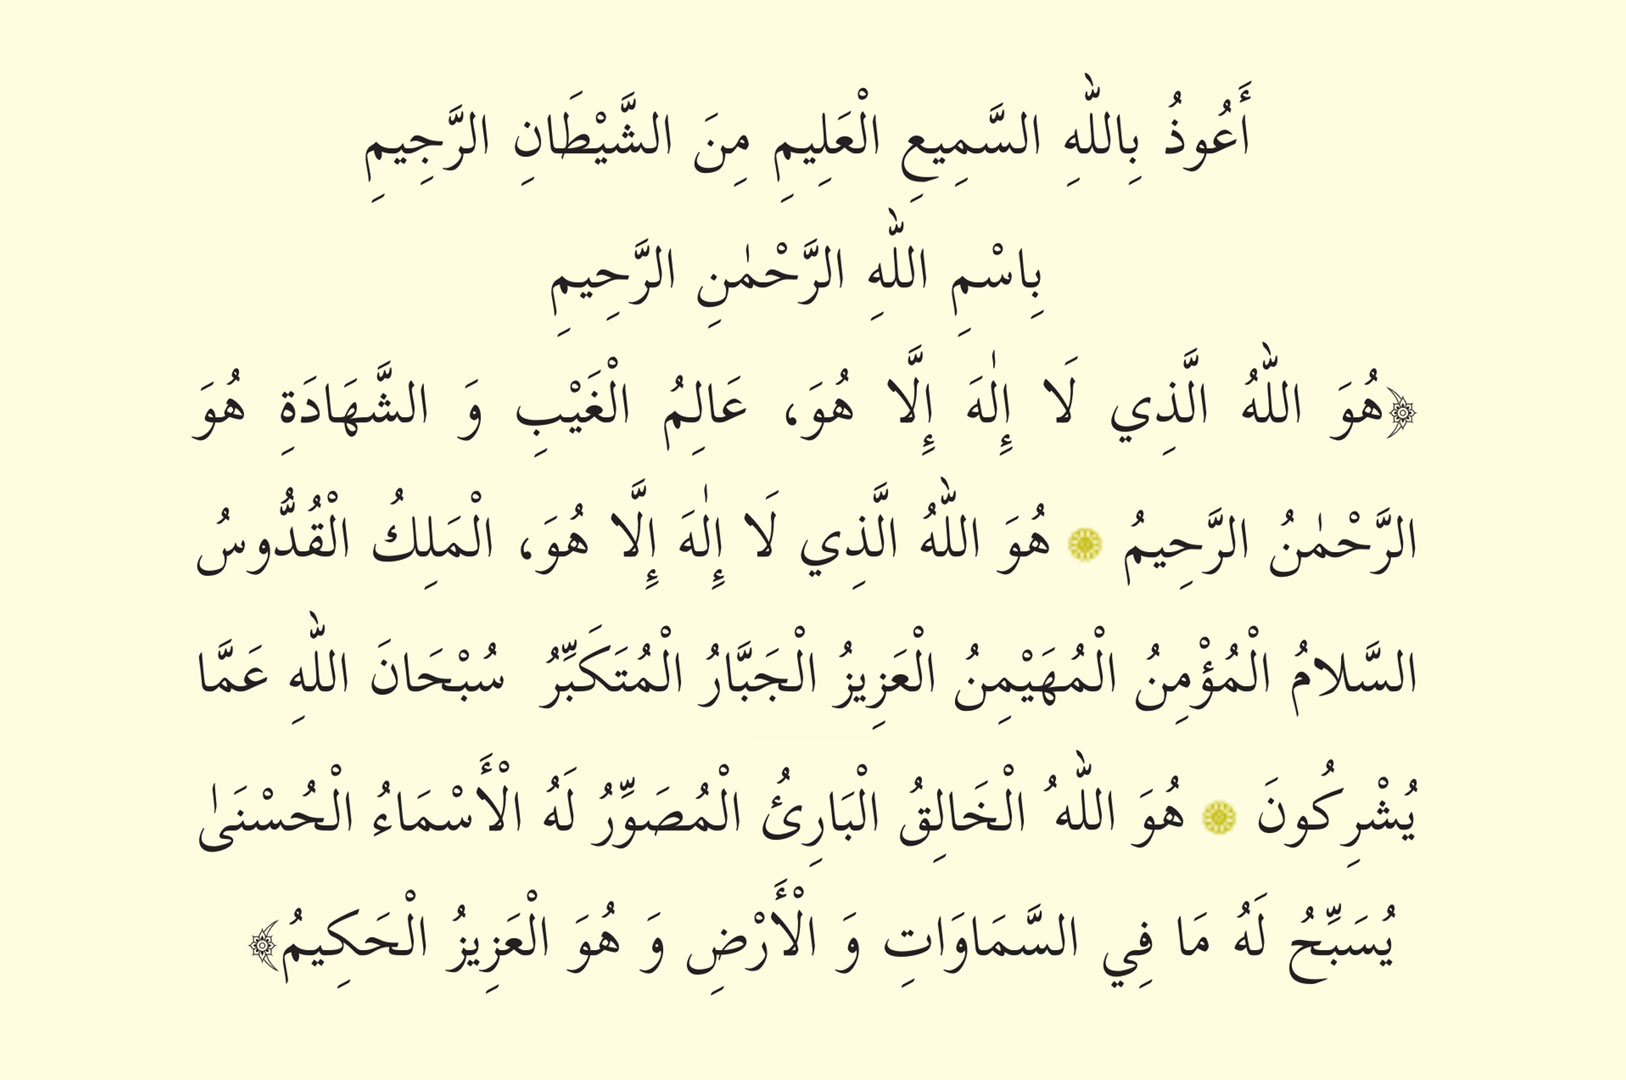 أَعُوذُ بِاللّٰهِ السَّمِيعِ الْعَلِيمِ مِنَ الشَّيْطَانِ الرَّجِيمِ
بِاسْمِ اللّٰهِ الرَّحْمٰنِ الرَّحِيمِ
﴿هُوَ اللّٰهُ الَّذِي لَا إِلٰهَ إِلَّا هُوَ، عَالِمُ الْغَيْبِ وَ الشَّهَادَةِ هُوَ
الرَّحْمٰنُ الرَّحِيمُ ۝ هُوَ اللّٰهُ الَّذِي لَا إِلٰهَ إِلَّا هُوَ، الْمَلِكُ الْقُدُّوسُ
السَّلامُ الْمُؤْمِنُ الْمُهَيْمِنُ الْعَزِيزُ الْجَبَّارُ الْمُتَكَبِّرُ سُبْحَانَ اللّٰهِ عَمَّا
يُشْرِكُونَ ۝ هُوَ اللّٰهُ الْخَالِقُ الْبَارِئُ الْمُصَوِّرُ لَهُ الْأَسْمَاءُ الْحُسْنَىٰ
يُسَبِّحُ لَهُ مَا فِي السَّمَاوَاتِ وَ الْأَرْضِ وَ هُوَ الْعَزِيزُ الْحَكِيمُ﴾